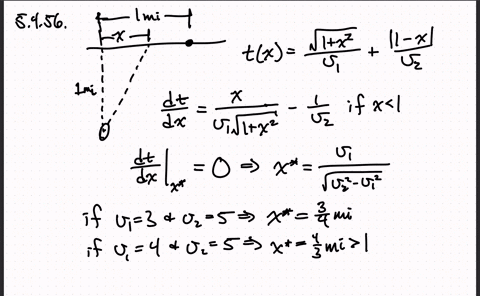 5.4.56.
1mi
x
1mi
t(x) = √(1+x²)/v₁ + |1-x|/v₂
dt/dx = x/(v₁√(1+x²)) - 1/v₂ if x<1
dt/dx|ₓ* = 0 ⇒ x* = v₁/√(v₂²-v₁²)
if v₁=3 & v₂=5 ⇒ x* = 3/4 mi
if v₁=4 & v₂=5 ⇒ x* = 4/3 mi > 1